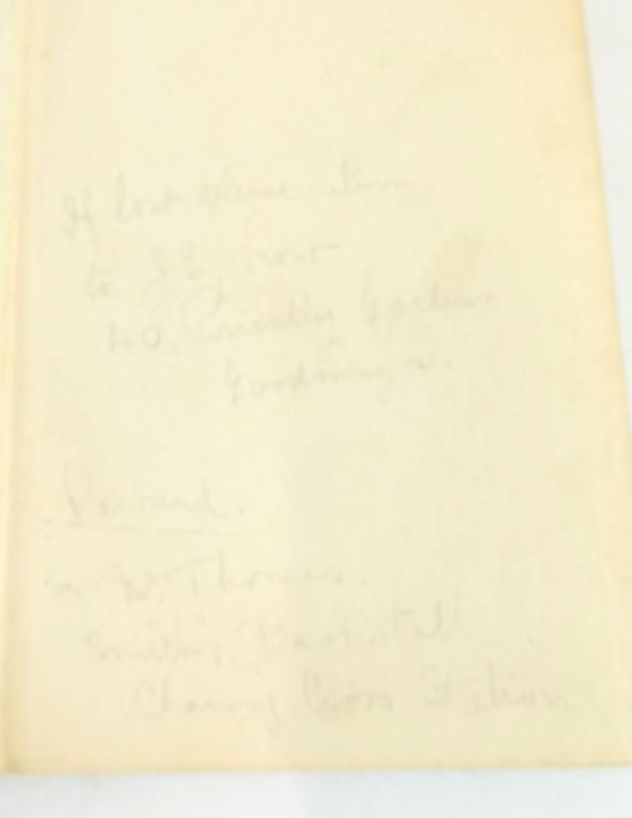 If lost please return
to J.E.
40, Gardens
Goodmayes.
Reward.
or W. Thomas.
Smith's Bookstall
Charing Cross Station